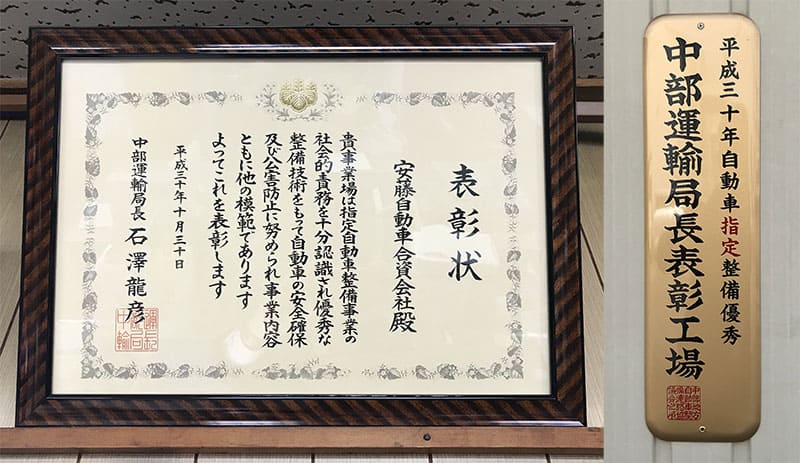 表彰状
安藤自動車合資会社殿
貴事業場は指定自動車整備事業の
社会的責務を十分認識され優秀な
整備技術をもって自動車の安全確保
及び公害防止に努められ事業内容
ともに他の模範であります
よってこれを表彰します
平成三十年十月三十日
中部運輸局長 石澤龍彦
平成三十年自動車指定整備優秀
中部運輸局長表彰工場